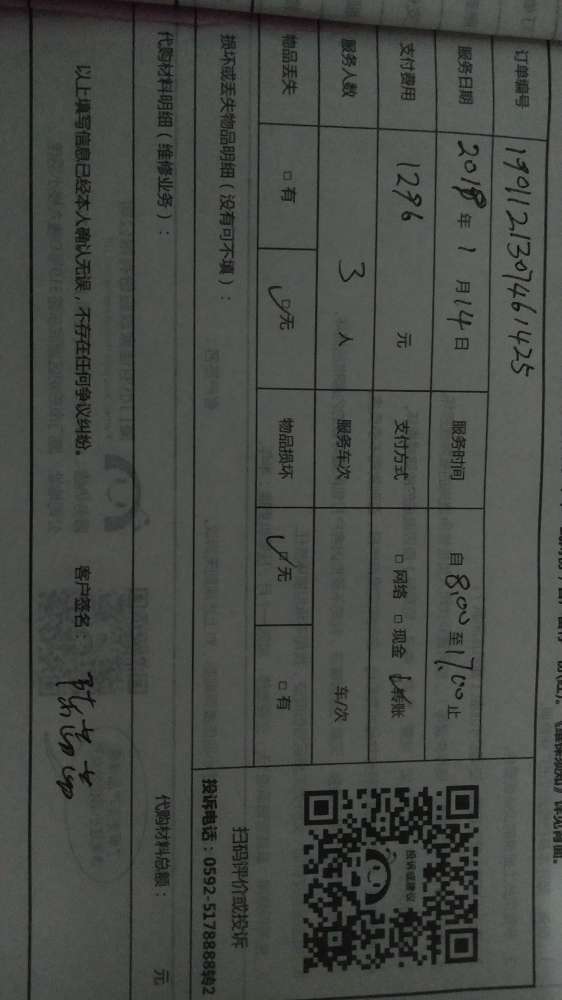 订单编号 1901121307461425
服务日期 2018年1月14日 服务时间 自8:00至17:00止
支付费用 1296元 支付方式 □网络 □现金 ☑转账
服务人数 3人 服务车次 车/次
物品丢失 □有 ☑无 物品损坏 ☑无 □有
投诉或建议
扫码评价或投诉
投诉电话：0592-5178888转2
损坏或丢失物品明细（没有可不填）：
代购材料明细（维修业务）： 代购材料总额： 元
以上填写信息已经本人确认无误，不存在任何争议纠纷。 客户签名：